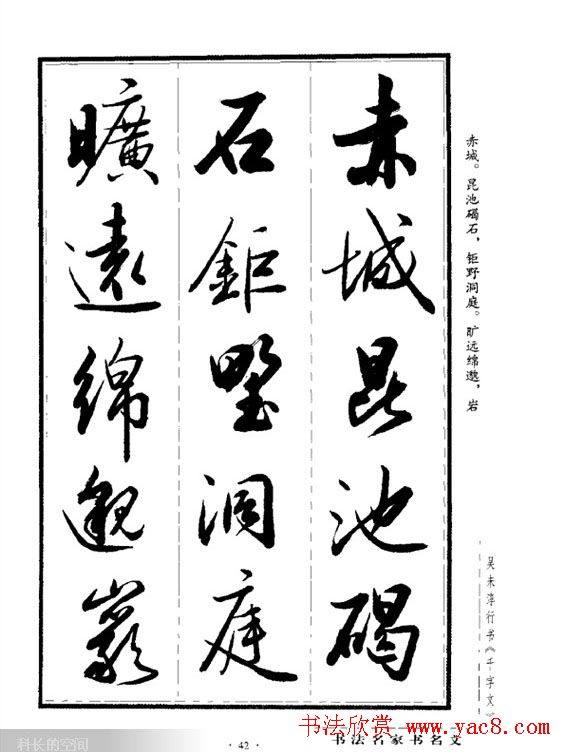 赤城昆池碣
石鉅野洞庭
曠遠綿邈巖
赤城。昆池碣石，钜野洞庭。旷远绵邈，岩
吴未淳行书《千字文》
书法名家书名文
· 42 ·
书法欣赏 www.yac8.com
科长的空间